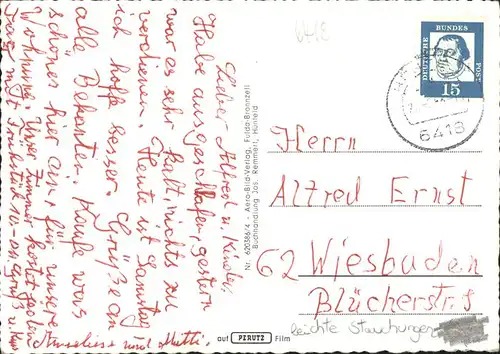 Lieber Alfred u. Kinder.
Habe ausgeschlafen, gestern
war es sehr kalt, nichts zu
verdienen. Heute ist Samstag
ich hoffe besser. Grüße an
alle Bekannten. Kaufe was
schönes hier ein für unsere
Wohnung. Unser Zimmer kostet
Tag mit Frühstück
Anneliese und Mutti.
Nr. 620386/4 - Aero-Bild-Verlag, Fulda-Bronnzell
Buchhandlung Jos. Remmert, Hünfeld
auf PERUTZ Film
6418
DEUTSCHE BUNDESPOST
15
6418
Herrn
Alfred Ernst
62 Wiesbaden
Blücherstr. 8
leichte Stauchungen